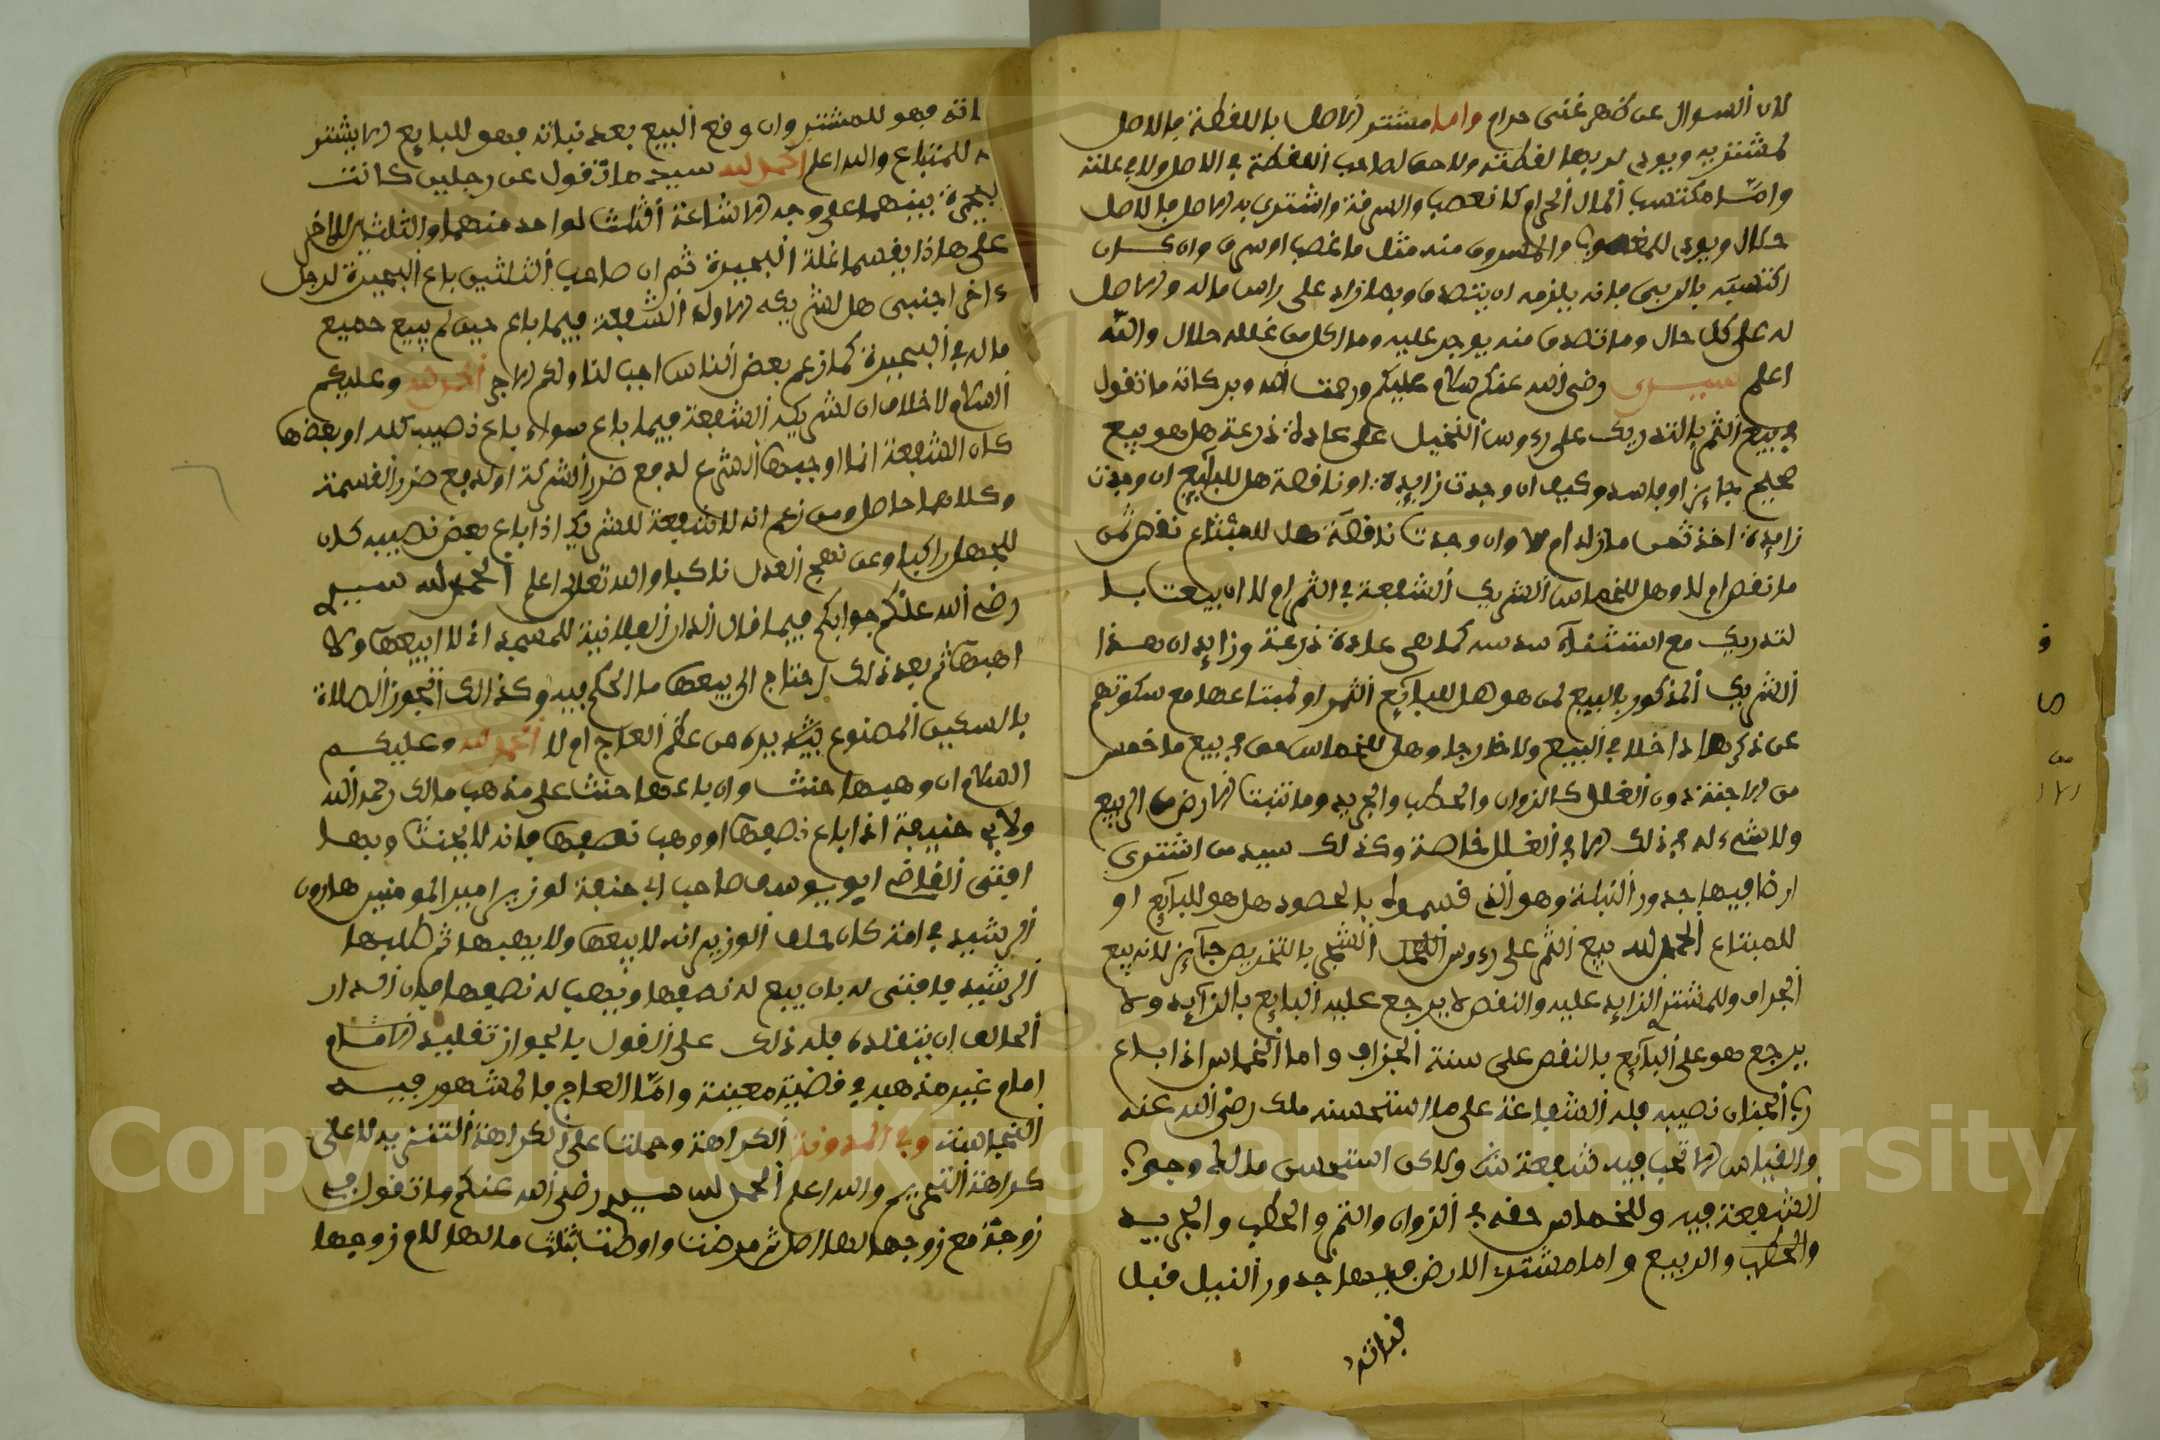 لان السوال عن ظهر غنى حرام واما مشتر الاصل باللقطة فالاصل
لمشتريه ويودى لربها لقطته ولا حق لصاحب اللقطة في الاصل ولا في غلته
وامّا مكتسب المال الحرام كالغصب والسرقة واشترى به الاصل فالاصل
حلال ويودى للمغصوب والمسروق منه مثل ما غصب او سرق وان كان
اكتسبه بالربى فانه يلزمه ان يتصدق وبما زاد على راس ماله والاصل
له على كل حال وما تصدق منه يوجر عليه وما اكل من غلله حلال والله
اعلم سيدى رضى الله عنكم سلام عليكم ورحمت الله وبركاته ما تقول
في بيع الثمر بالتدريك على رءوس النخيل على عادة درعة هل هو بيع
صحيح جايز او فاسد وكيف ان وجدت زايدة او ناقصة هل للبايع ان وجدت
زايدة اخذ ثمن ما زاد ام لا وان وجدت ناقصة هل للمبتاع نقص ثمن
ما نقص ام لا وهل للخماس الشريك الشفعة في الثمر ام لا ان بيعت با
لتدريك مع استثناء سدسه كما هى عادة درعة وزايد ان هذا
الشريك المذكور بالبيع لمن هو هل للبايع الثمر او لمبتاعها مع سكوتهم
عن ذكرها داخلا في البيع ولا خارجا وهل للخماس حق في بيع ما خمس
من الاجنة دون الغلل كالزوان والحطب والجريد وما تنبت الارض من الربيع
ولا شىء له في ذلك الا في الغلل خاصة وكذلك سيد من اشترى
ارضا فيها جدور النيلة وهو الذى قسموه بالحصود هل هو للبايع او
للمبتاع الحمد لله بيع الثمر على رءوس النخل الشجر بالتخريص جايز لانه بيع
الجزاف وللمشتر الزايد عليه والنقص لا يرجع عليه البايع بالزايد ولا
يرجع هو على البايع بالنقص على سنة الجزاف واما الخماس اذا باع
رب الجنان نصيبه فله الشفاعة على ما استحسنه ملك رضى الله عنه
والقياس الا تجب فيه شفعة ولاكن استحسن مالك وجوب
الشفعة فيه وللخماس حقه في الزوان والثمر والحطب والجريد
والحطب والربيع واما مشتر الارض فيها جدور النيل قبل
نباته
اته فهو للمشتر وان وقع البيع بعد نباته فهو للبايع الا يشتر
ه للمتباع والله اعلم الحمد لله سيد ما تقول عن رجلين كانت
بحيرة بينهما على وجه الاشاعة الثلث لواحد منهما والثلثين للاخر
على هاذا يقسما غلة البحيرة ثم ان صاحب الثلثين باع البحيرة لرجل
ءاخر اجنبى هل لشريكه الاول الشفعة فيما باع حين لم يبيع جميع
ماله في البحيرة كما زعم بعض الناس اجب لنا ولكم الاجر الحمد لله وعليكم
السلام لا خلاف ان لشريكه الشفعة فيما باع سواء باع نصيبه كله او بعضها
كان الشفعة انما اوجبها الشرع لدفع ضرر الشركة او لدفع ضرر القسمة
وكلاهما حاصل ومن زعم انه لا شفعة للشريك اذا باع بعض نصيبه كان
للجهل راكبا وعن نهج العدل ناكبا والله تعالى اعلم الحمد لله سيدى
رضى الله عنكم جوابكم فيما قال الدار الفلانية للمسجد انى لا ابيعها ولا
اهبها ثم بعد ذلك احتاج الى بيعها ما الحكم فيه وكذالك اتجوز الصلاة
بالسكين المصنوع يده من عظم العاج ام لا الحمد لله وعليكم
السلام ان وهبها حنث وان باعها حنث على مذهب مالك رحمه الله
ولابى حنيفة اذا باع نصفها او وهب نصفها فانه لا يحنث وبها
افتى القاضى ابو يوسف صاحب ابى حنيفة لوزير امير المومنين هارون
الرشيد في امة كان حلف الوزير انه لا يبيعها ولا يهبها ثم طلبها
الرشيد فافتى له بان يبيع له نصفها ويهب له نصفها فان اراد
الحالف ان يقلده فله ذلك على القول بالجواز تقليد الامام
امام غير مذهبه في قضية معينة وامّا العاج فالمشهور فيه
النجاسة وفي المدونة الكراهة وحملت على الكراهة التنزيه لا على
كراهة التحريم والله اعلم الحمد لله سيدى رضى الله عنكم ما تقول في
زوجة مع زوجها لها اصل ثم مرضت واوصت بثلث مالها لام زوجها